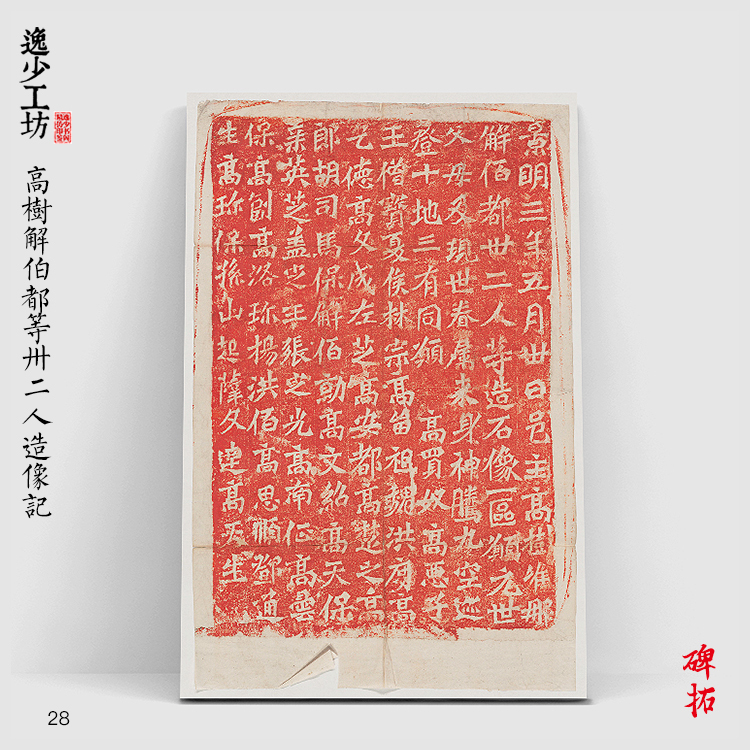 逸少工坊
高樹解伯都等卅二人造像記
景明三年五月卅日邑主高樹唯那
解佰都卅二人等造石像一區願元世
父母及現世眷屬来身神騰九空迹
登十地三有同願 高買奴高惡子
王僧寶夏侯林宗高留祖魏洪度高
乞德高文成左芝高安都高楚之高
郎胡司馬保解佰勍高文紹高天保
英芝蓋之王張之光高南征高曇
保高副高洛珎楊洪佰高思順鄧通
生高珎保孫山起薩文達高天生
碑拓
28